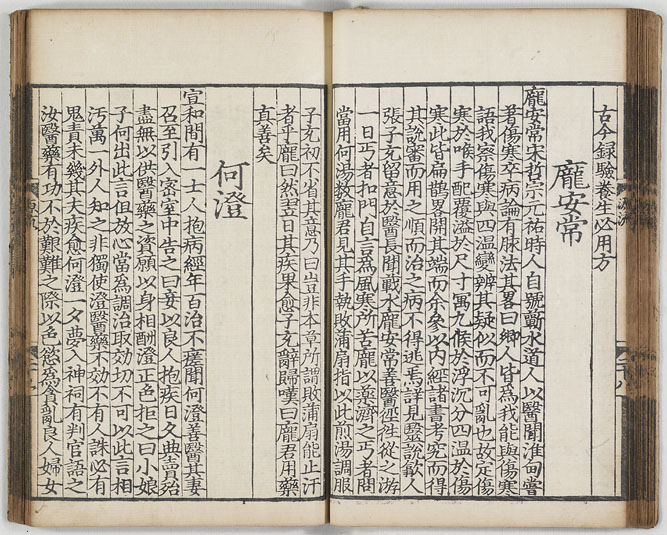 古今録驗養生必用方
龐安常
龐安常宋哲宗元祐時人自號蘄水道人以醫聞淮甸嘗
著傷寒卒病論有脉法其畧曰鄉人皆為我能與傷寒
語我察傷寒與四温變辨其疑似而不可亂也故定傷
寒於喉手配覆溢於尺寸寓九候於浮沉分四温於傷
寒此皆扁鵲畧開其端而余參以内經諸書考究而得
其説審而用之順而治之病不得逃焉詳見醫說歙人
張子充留意於醫長聞戰水龐安常善醫經徃從之游
一日丐者扣門自言為風寒所苦龐以藥濟之丐者問
當用何湯使龐君見其手執敗蒲扇指以此煎湯調服
子充初不省其意乃曰豈非本草所謂敗蒲扇能止汗
者乎龐曰然翌日其疾果愈子充辭歸嘆曰龐君用藥
真善矣
何澄
宣和間有一士人抱病經年百治不瘥聞何澄善醫其妻
召至引入密室中告之曰妾以良人抱疾日久典賣殆
盡無以供醫藥之資願以身相酬澄正色拒之曰小娘
子何出此言但放心當為調治取效切不可以此言相
汚萬一外人知之非獨使澄醫藥不効不有人誅必有
鬼責未幾其夫疾愈何澄一夕夢入神祠有判官語之
汝醫藥有功不於艱難之際以色慾為貪亂良人婦女